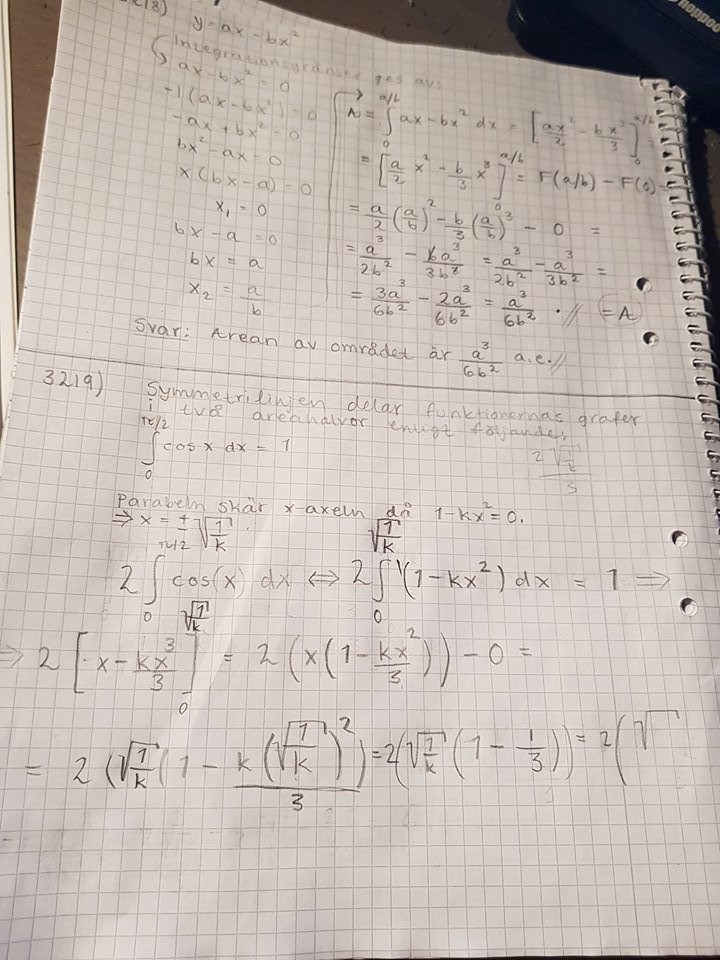 y=ax-bx²
Integrationsgränser ges av:
ax-bx² = 0
-1(ax-bx²) = 0
-ax+bx² = 0
bx²-ax = 0
x(bx-a) = 0
x₁ = 0
bx-a = 0
bx = a
x₂ = a/b
A = ∫₀^(a/b) ax-bx² dx = [ax²/2 - bx³/3]₀^(a/b) =
= [a/2 x² - b/3 x³]₀^(a/b) = F(a/b) - F(0)
= a/2 (a/b)² - b/3 (a/b)³ - 0 =
= a³/2b² - ba³/3b³ = a³/2b² - a³/3b² =
= 3a³/6b² - 2a³/6b² = a³/6b² . // = A
Svar: Arean av området är a³/6b² a.e.//
3219) Symmetrilinjen delar funktionernas grafer
i två areahalvor enligt följande:
∫₀^(π/2) cos x dx = 1
2√(1/k) / 3
Parabeln skär x-axeln då 1-kx²=0.
⇒ x = ±√(1/k).
2 ∫₀^(π/2) cos(x) dx ⇔ 2 ∫₀^(√(1/k)) (1-kx²) dx = 1 ⇒
⇒ 2 [x - kx³/3]₀^(√(1/k)) = 2 (x(1 - kx²/3)) - 0 =
= 2 (√(1/k) (1 - k(√(1/k))²/3) = 2(√(1/k) (1 - 1/3)) = 2(√